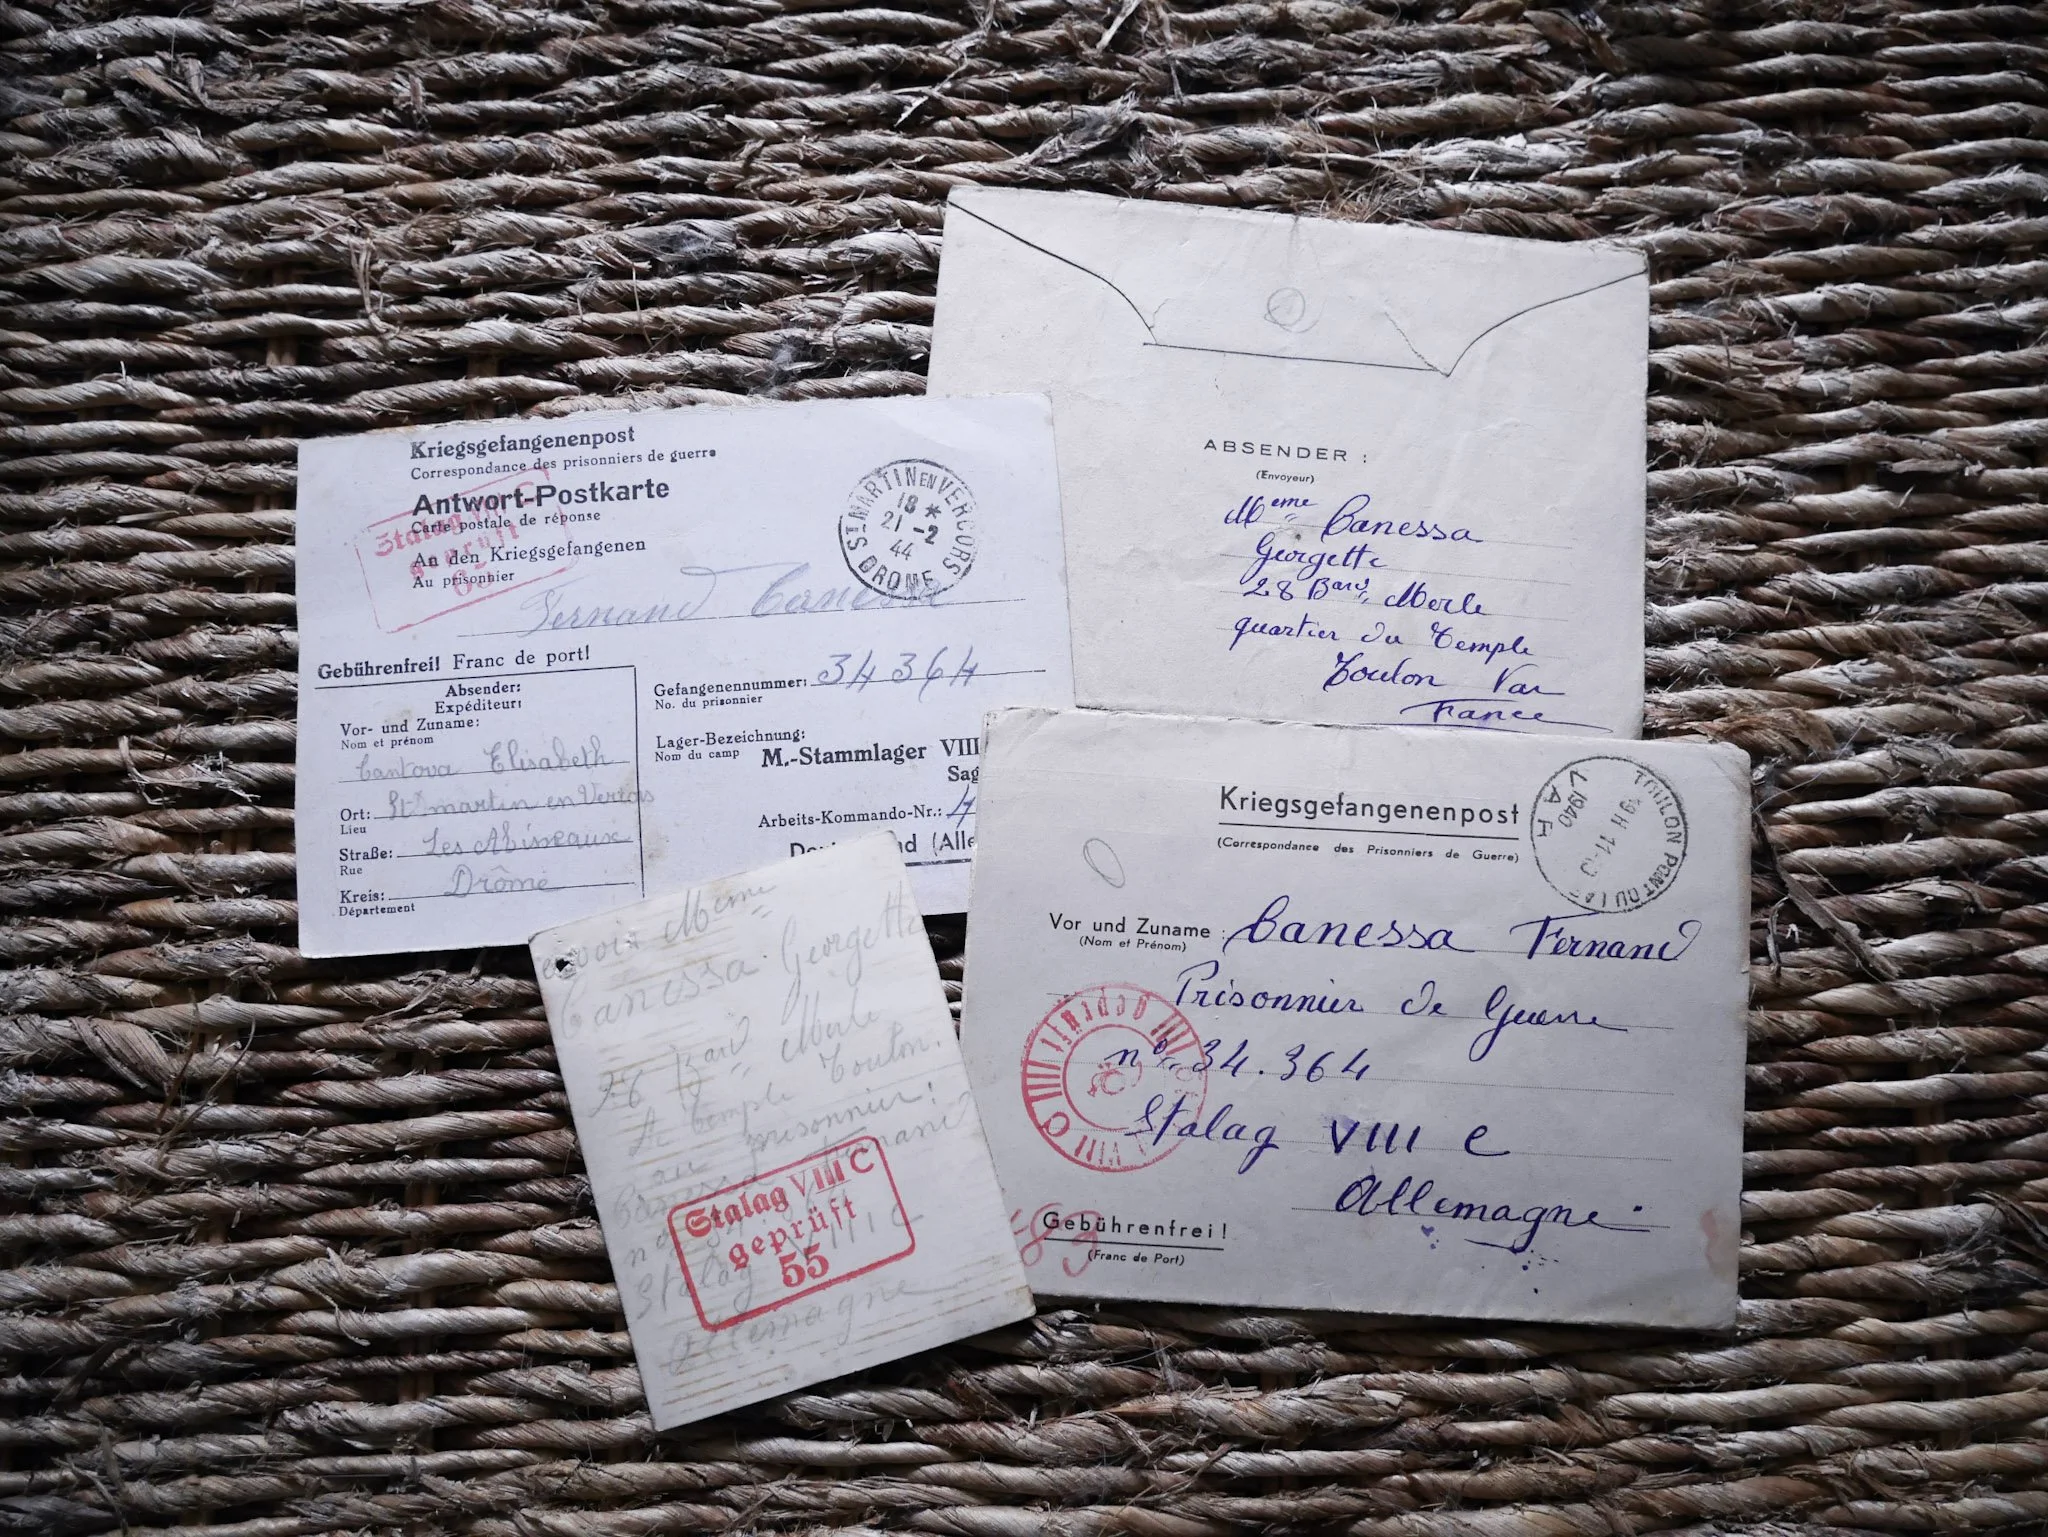 Kriegsgefangenenpost
Correspondance des prisonniers de guerre
Antwort-Postkarte
Carte postale de réponse
An den Kriegsgefangenen
Au prisonnier
Fernand Canessa
Stalag
geprüft
ST MARTIN EN VERCORS
18 *
21 -2
44
DROME
Gebührenfrei! Franc de port!
Absender:
Expéditeur:
Vor- und Zuname:
Nom et prénom
Cantova Elisabeth
Ort: St martin en Vercors
Lieu
Straße: Les
Rue
Kreis: Drôme
Département
Gefangenennummer: 34364
No. du prisonnier
Lager-Bezeichnung:
Nom du camp
M.-Stammlager VIII
Sag
Arbeits-Kommando-Nr.:
nd (Alle
ABSENDER :
(Envoyeur)
Meme Canessa
Georgette
28 Bard Merle
quartier du Temple
Toulon Var
France
Kriegsgefangenenpost
(Correspondance des Prisonniers de Guerre)
TOULON PONT DU LAS
1940
VAR
Vor und Zuname : Canessa Fernand
(Nom et Prénom)
Prisonnier de Guerre
no 34.364
Stalag VIII C
Allemagne
Geprüft
VIII C
Gebührenfrei!
(Franc de Port)
envoi Meme
Canessa Georgette
Bard Merle
Le Temple Toulon.
au prisonnier!
Canessa Fernand
Stalag VIII C
Allemagne
Stalag VIII C
geprüft
55